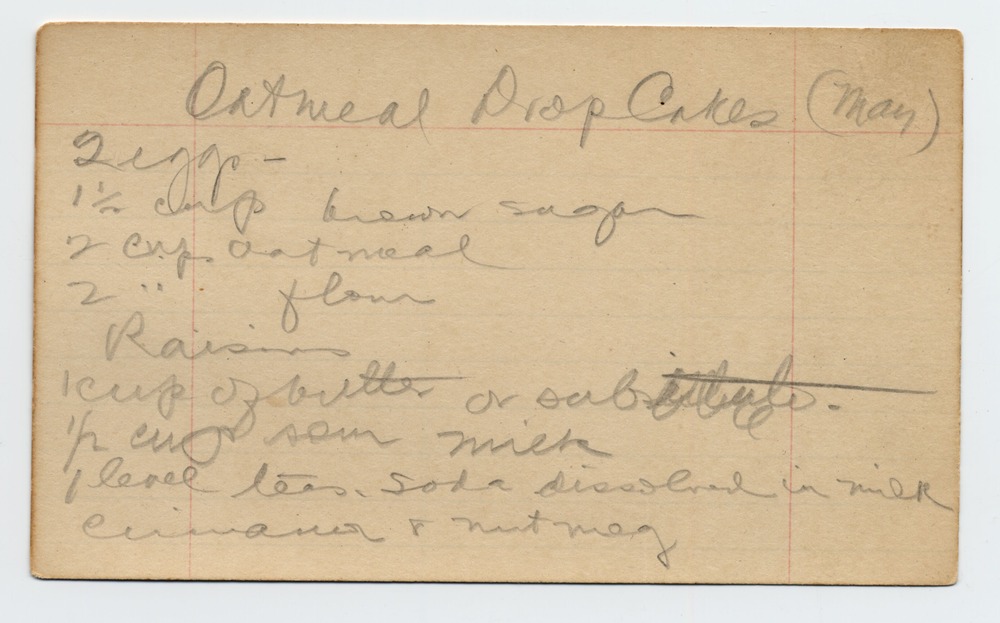 Oatmeal Drop Cakes (May)
2 eggs -
1 1/2 cup brown sugar
2 cup oatmeal
2 " flour
Raisins
1 cup of butter or substitute.
1/2 cup sour milk
1 level teas. soda dissolved in milk
Cinnamon & nutmeg